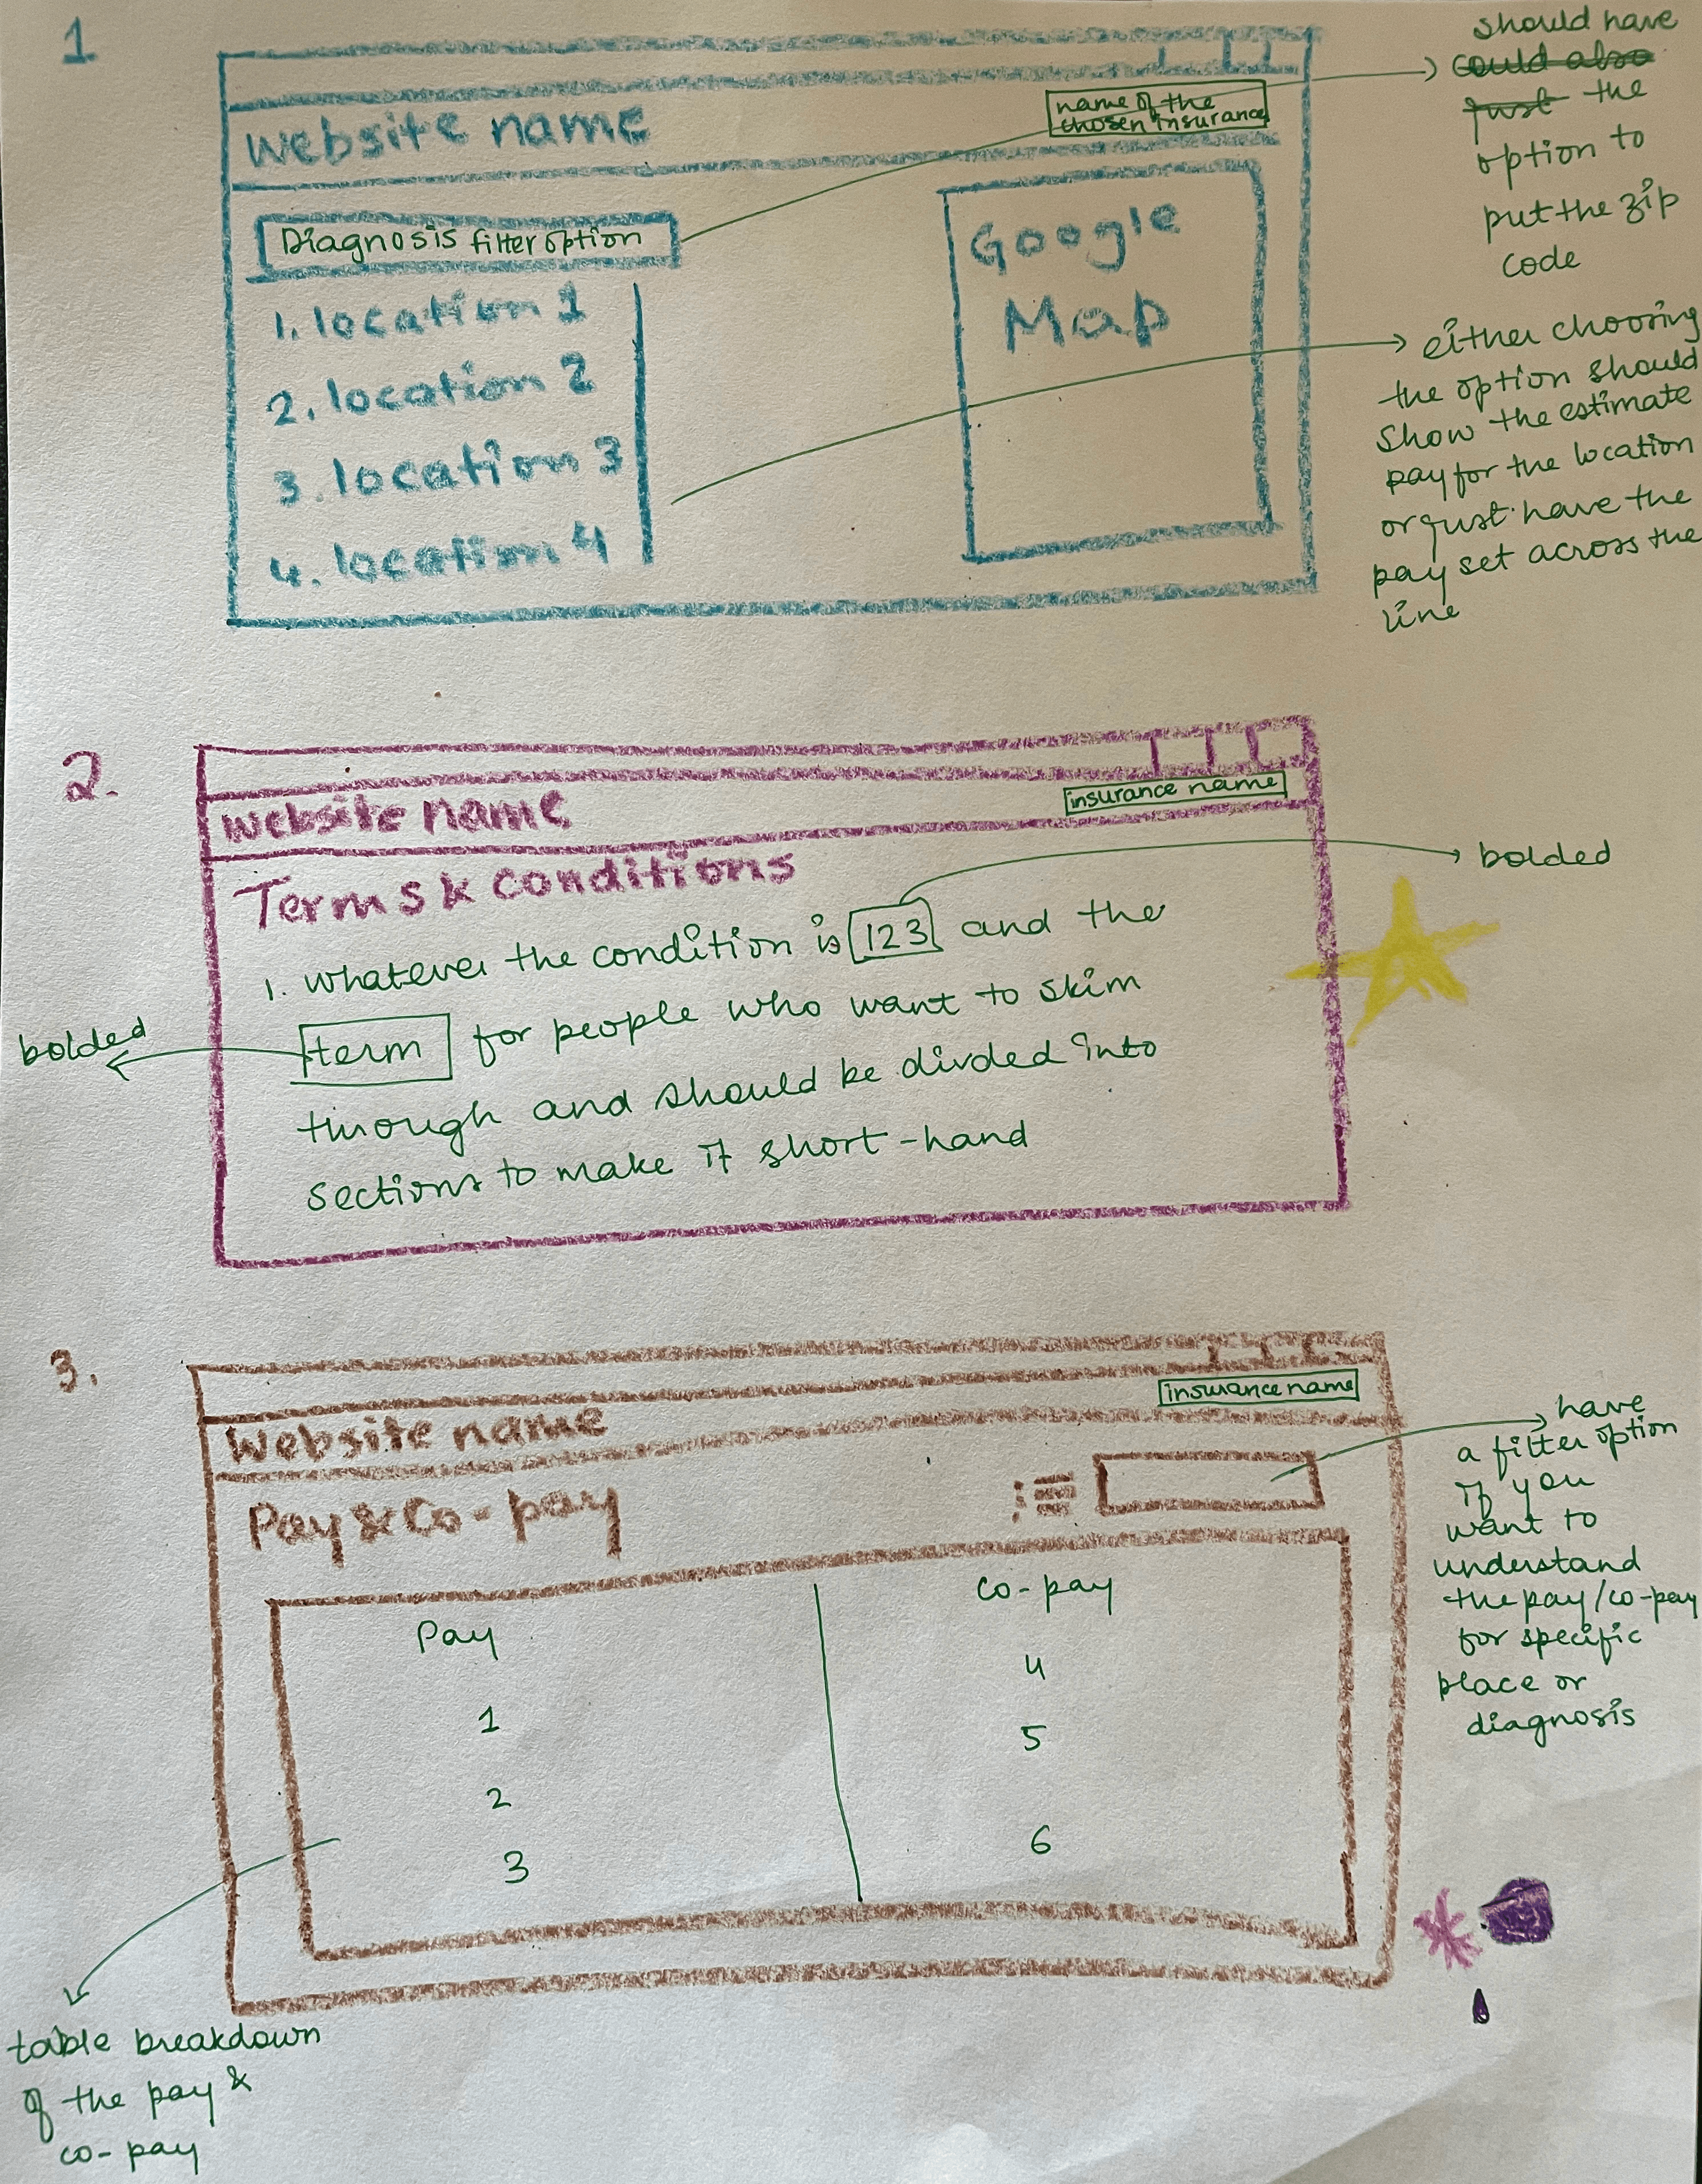 1
website name
name of the
chosen insurance
Diagnosis filter option
1. location 1
2. location 2
3. location 3
4. location 4
Google
Map
should have
could also
just the
option to
put the zip
code
either choosing
the option should
show the estimate
pay for the location
or just have the
pay set across the
line
2.
website name
insurance name
Terms & conditions
1. whatever the condition is 123 and the
term for people who want to skim
through and should be divded into
sections to make it short-hand
bolded
bolded
3.
Website name
insurance name
Pay & Co-pay
Pay
1
2
3
co-pay
4
5
6
have
a filter option
if you
want to
understand
the pay/co-pay
for specific
place or
diagnosis
table breakdown
of the pay &
co-pay